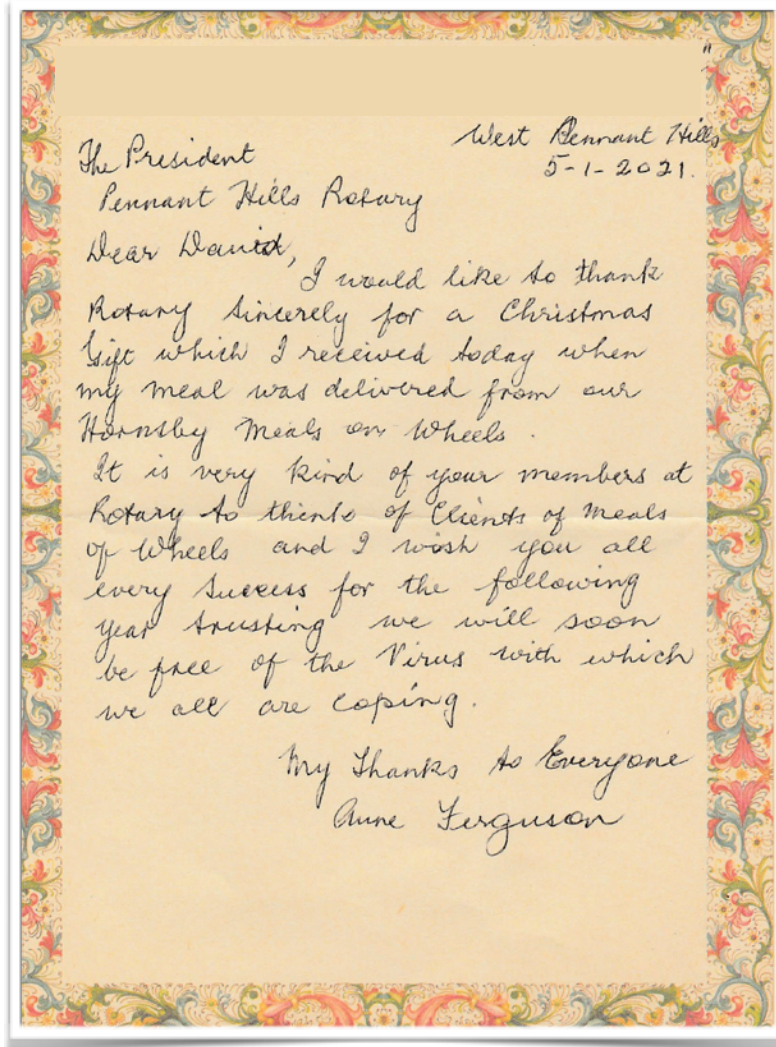 West Pennant Hills
5-1-2021.
The President
Pennant Hills Rotary
Dear David,
I would like to thank
Rotary sincerely for a Christmas
Gift which I received today when
my meal was delivered from our
Hornsby Meals on Wheels.
It is very kind of your members at
Rotary to think of Clients of Meals
of Wheels and I wish you all
every success for the following
year trusting we will soon
be free of the Virus with which
we all are coping.
My Thanks to Everyone
Anne Ferguson